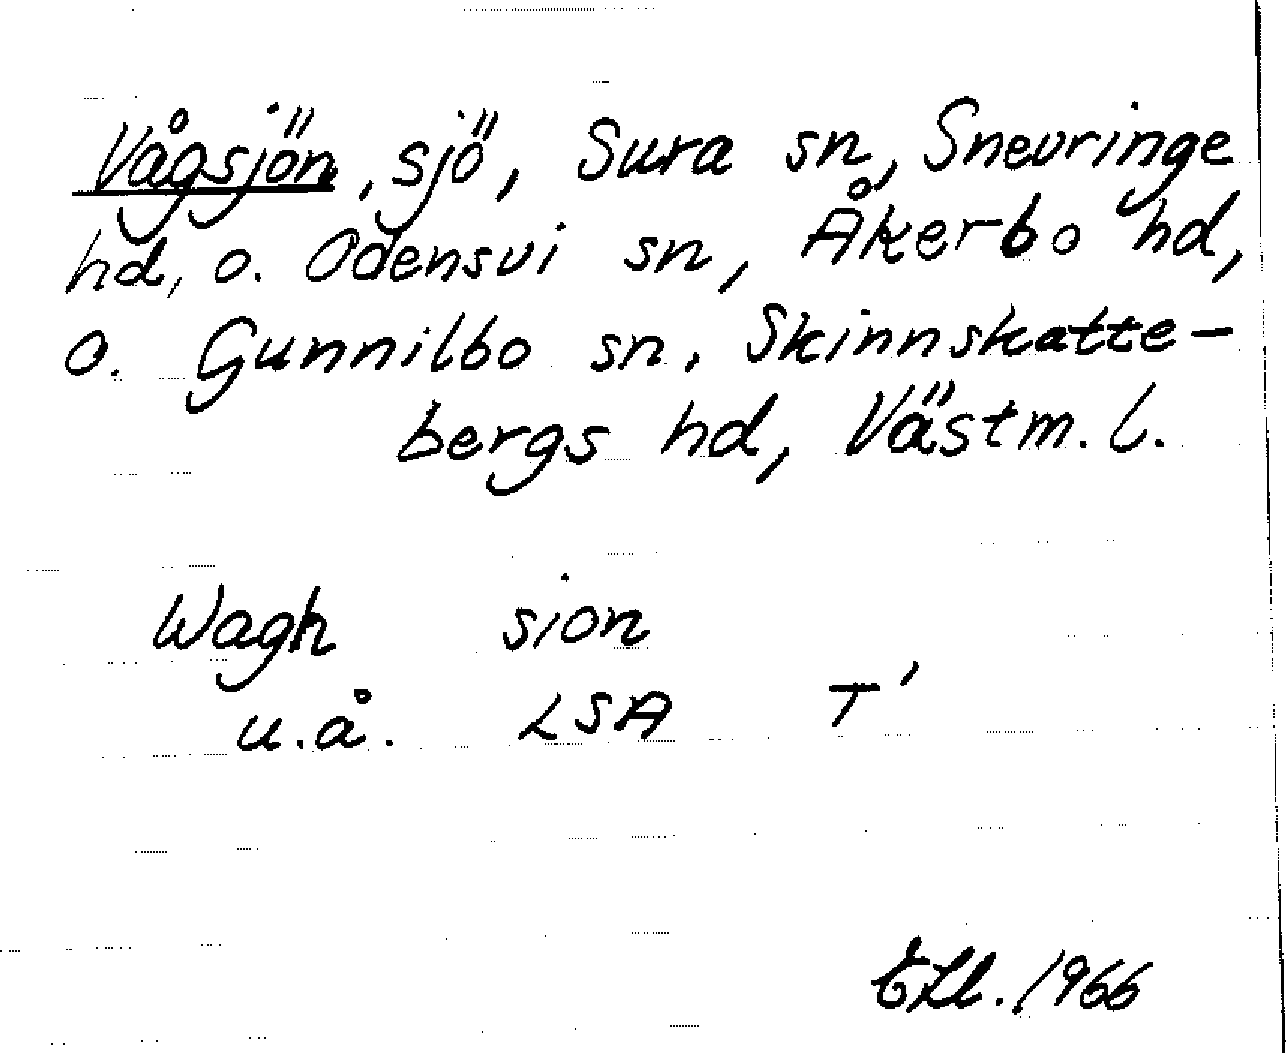 Vågsjön, sjö, Sura sn, Snevringe
hd, o. Odensvi sn, Åkerbo hd,
o. Gunnilbo sn, Skinnskatte-
bergs hd, Västm. l.
Wagh sion
u.å. LSA T'
1966